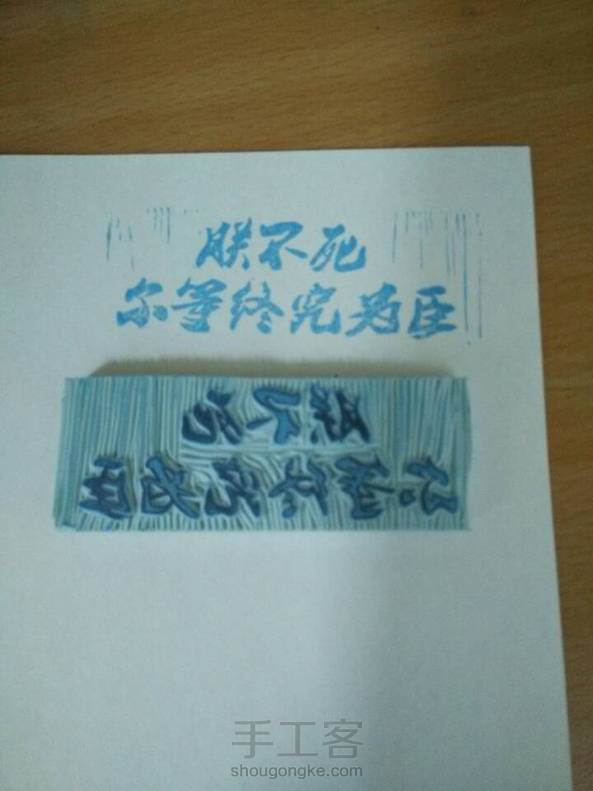 朕不死
尔等终究为臣
手工客
shougongke.com